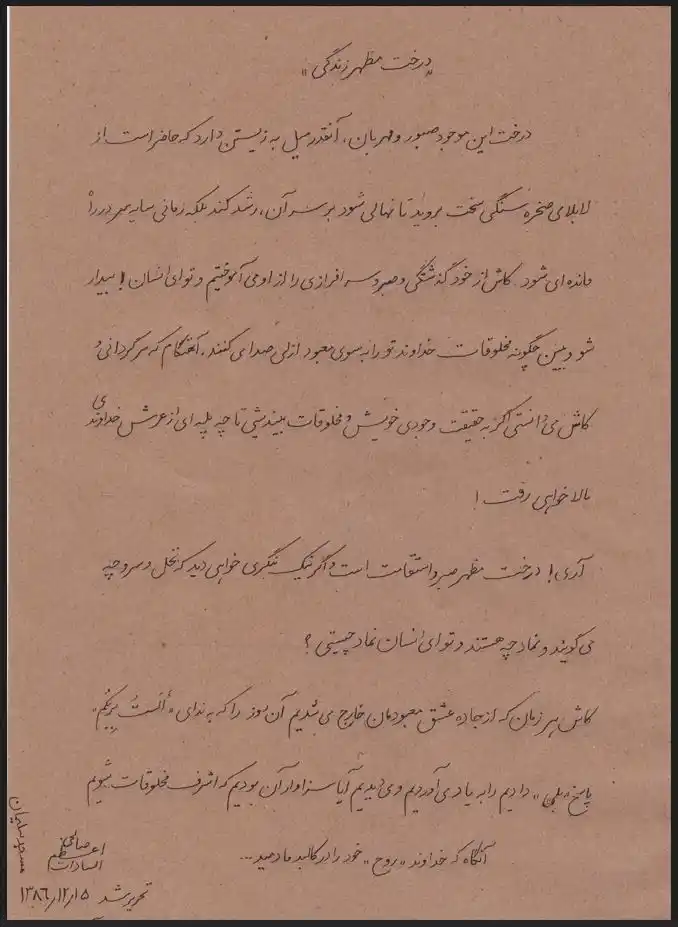 «درخت مظهر زندگی»
درخت این موجود صبور و مهربان، آنقدر میل به زیستن دارد که حاضر است از
لابلای صخره سنگی سخت بروید تا نهالی شود بر سر آن، رشد کند بلکه زمانی سایه بر در راه
مانده ای شود. کاش از خود گذشتگی و صبر و سرافرازی را از او می آموختیم و تو ای انسان! بیدار
شو و ببین چگونه مخلوقات خداوند تو را به سوی معبود ازلی صدا می کنند، آنهنگام که سرگردانی و
کاش می دانستی اگر به حقیقت وجودی خویش و مخلوقات بیندیشی تا چه پله ای از عرش خداوندی
بالا خواهی رفت!
آری! درخت مظهر صبر و استقامت است و اگر نیک بنگری خواهی دید که نخل و سرو چه
می گویند و نماد چه هستند و تو ای انسان نماد چیستی؟
کاش هر زمان که از جاده عشق معبودمان خارج می شدیم آن روز را که به ندای «ألستُ بربکم»
پاسخ «بلی» دادیم را به یاد می آوردیم و می دیدیم آیا سزاوار آن بودیم که اشرف مخلوقات شویم
آنگاه که خداوند «روح» خود را در کالبد ما دمید...
اعظم السادات صالحی
مسجد سلیمان
تحریر شد ۱۳۸۶٫۱۲٫۱۵